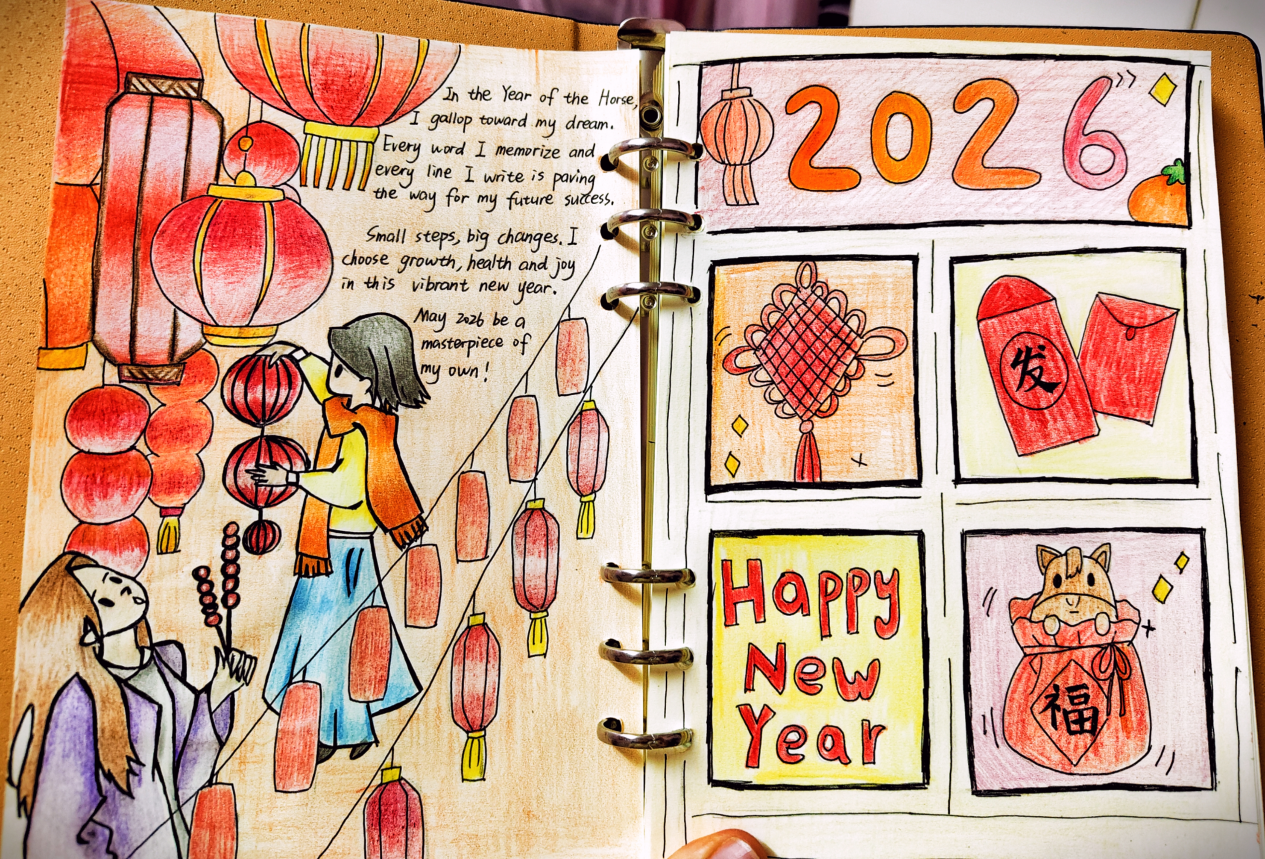 In the Year of the Horse,
I gallop toward my dream.
Every word I memorize and
every line I write is paving
the way for my future success.
Small steps, big changes. I
choose growth, health and joy
in this vibrant new year.
May 2026 be a
masterpiece of
my own!
2026
发
Happy
New
Year
福